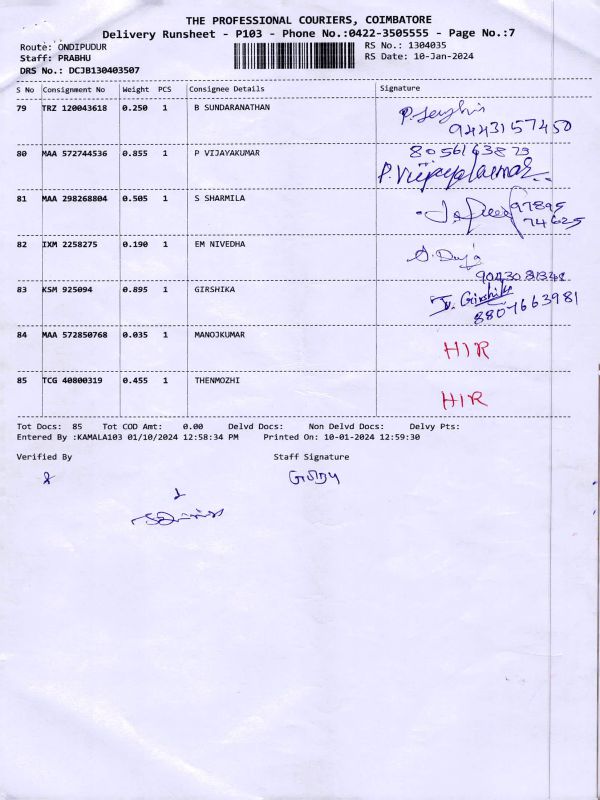 THE PROFESSIONAL COURIERS, COIMBATORE
Delivery Runsheet - P103 - Phone No.:0422-3505555 - Page No.:7
Route: ONDIPUDUR RS No.: 1304035
Staff: PRABHU RS Date: 10-Jan-2024
DRS No.: DCJB130403507
S No Consignment No Weight PCS Consignee Details Signature
79 TRZ 120043618 0.250 1 B SUNDARANATHAN
9443157450
80 MAA 572744536 0.855 1 P VIJAYAKUMAR
P. Vijayakumar
81 MAA 298268804 0.505 1 S SHARMILA 97895
74625
82 IXM 2258275 0.190 1 EM NIVEDHA
83 KSM 925094 0.895 1 GIRSHIKA Girshika
8807663981
84 MAA 572850768 0.035 1 MANOJKUMAR HIR
85 TCG 40800319 0.455 1 THENMOZHI HIR
Tot Docs: 85 Tot COD Amt: 0.00 Delvd Docs: Non Delvd Docs: Delvy Pts:
Entered By :KAMALA103 01/10/2024 12:58:34 PM Printed On: 10-01-2024 12:59:30
Verified By Staff Signature